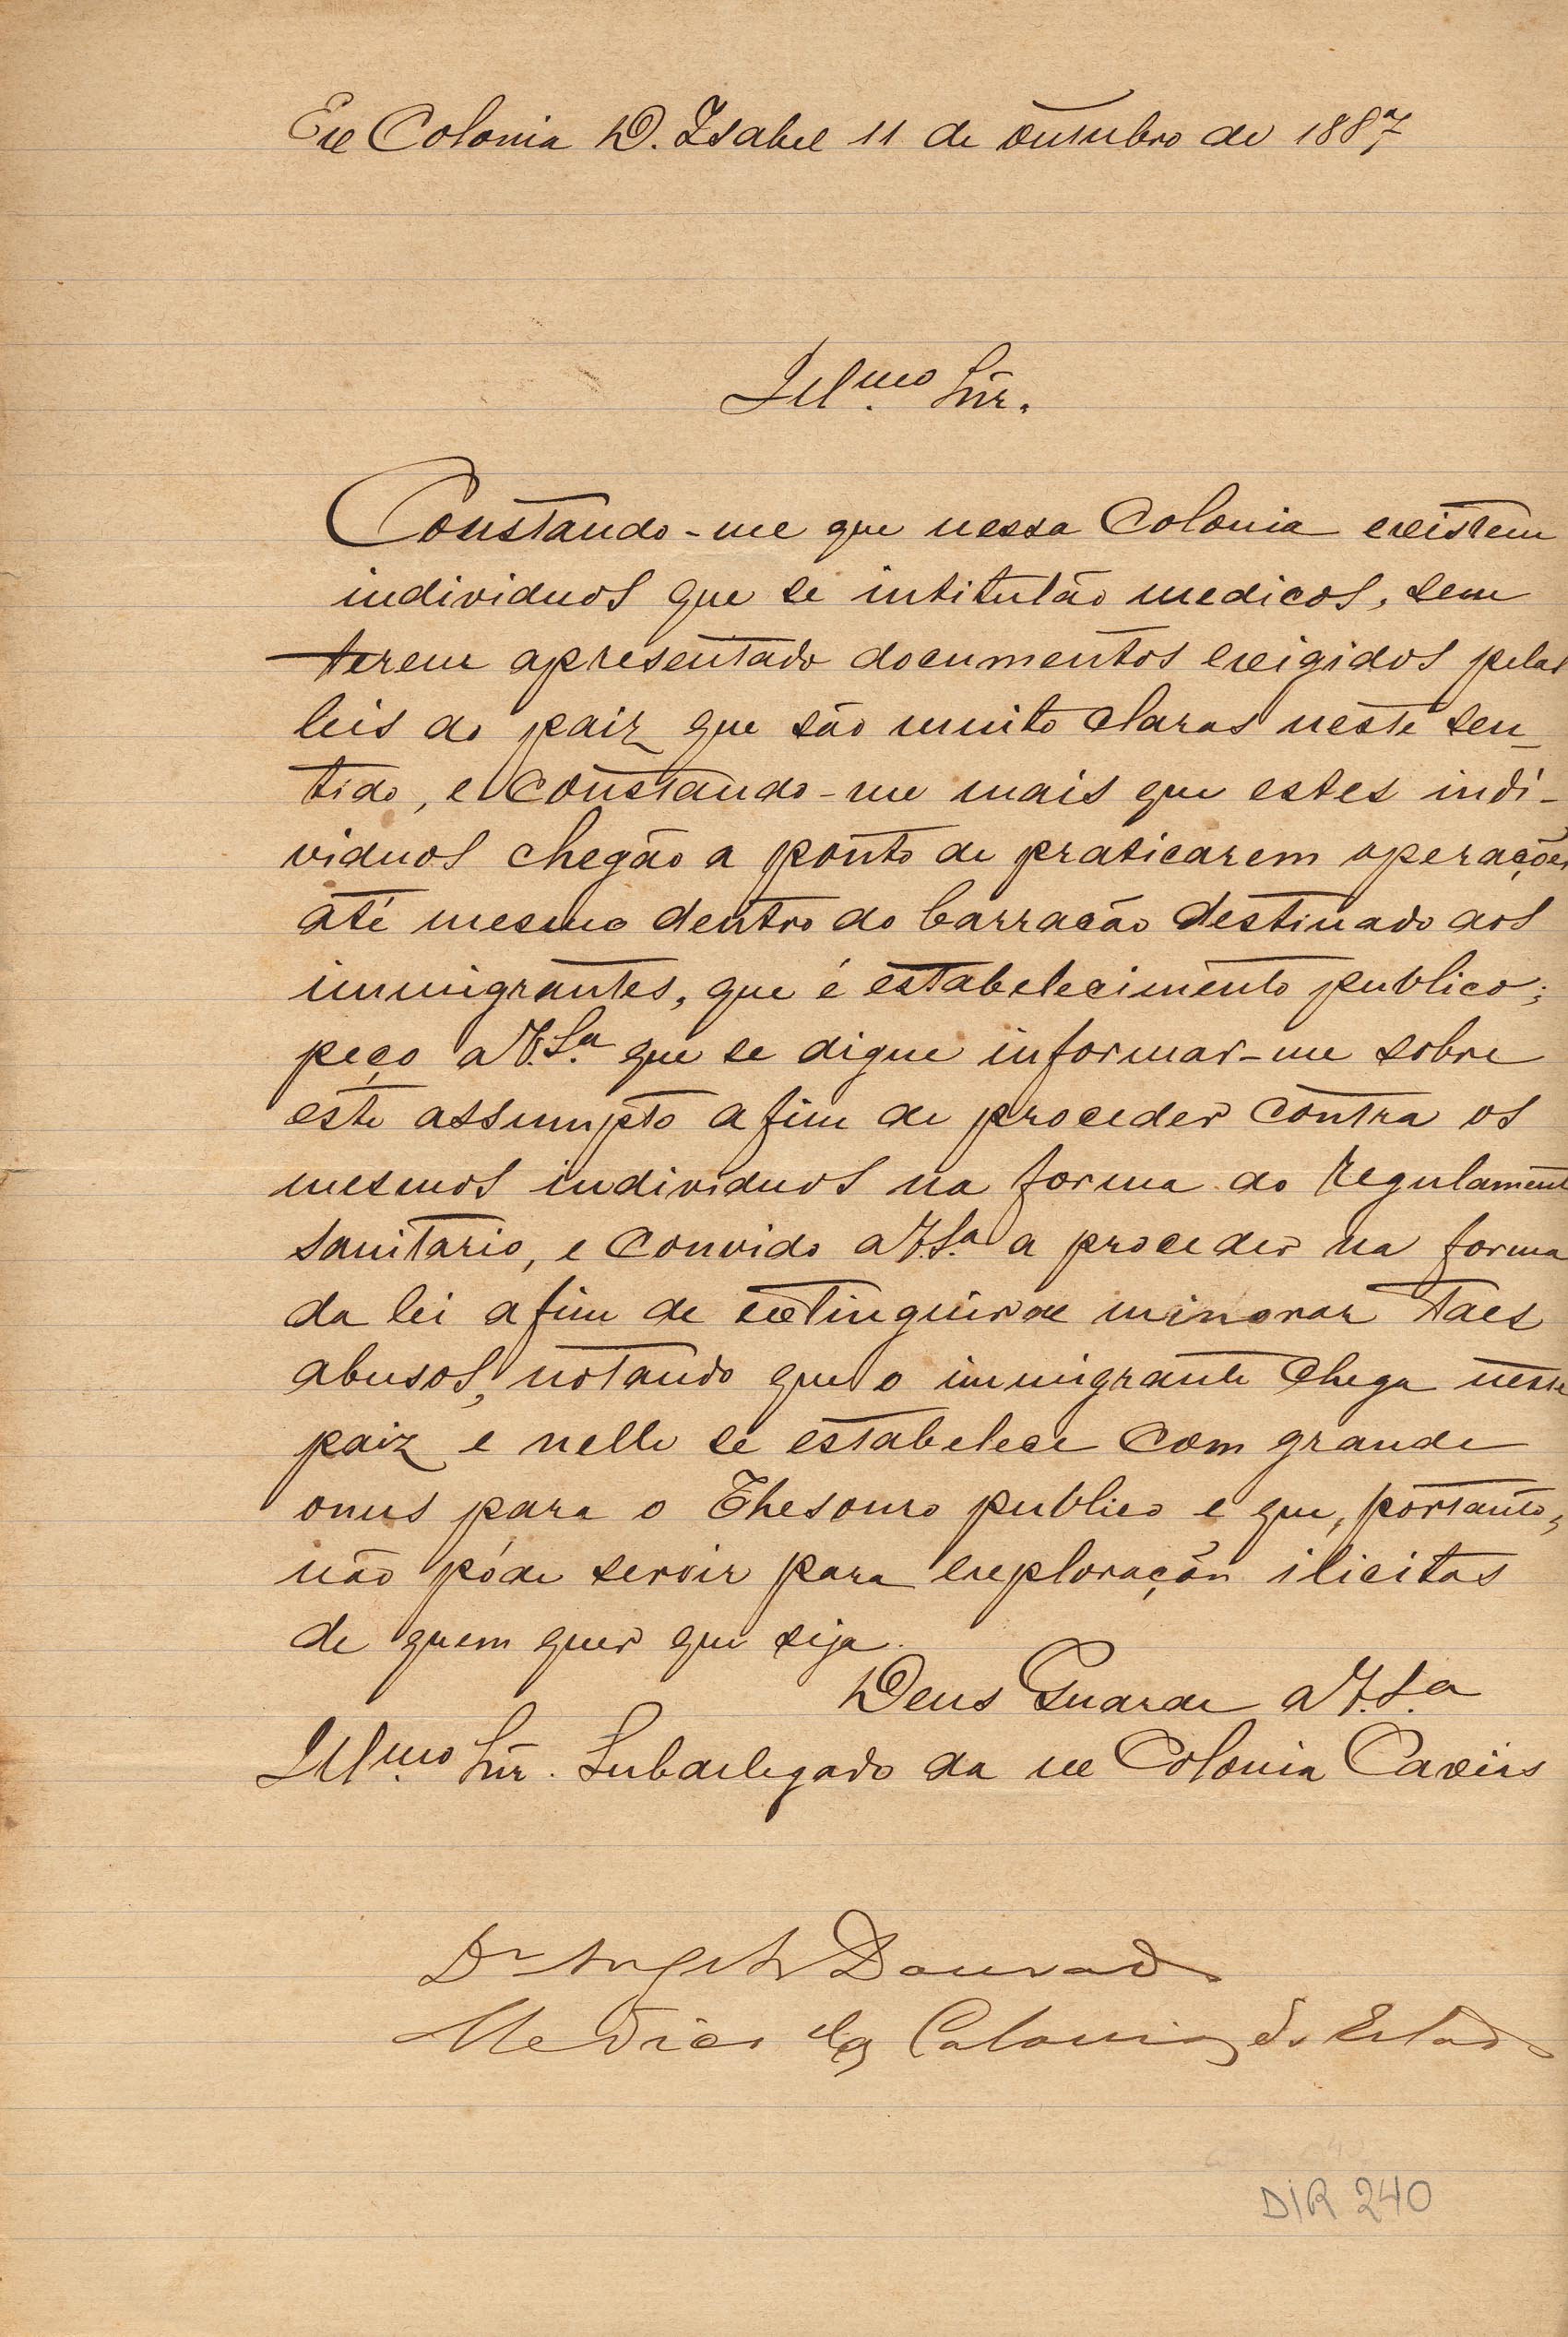 Ex Colonia D. Izabel 11 de outubro de 1887
Ill.mo Snr.
Constando-me que nessa Colonia existem
individuos que se intitulão medicos, sem
terem apresentado documentos exigidos pelas
leis do paiz que são muito claras neste sen-
tido, e constando-me mais que estes indi-
viduos chegão a ponto de praticarem operações
até mesmo dentro do barracão destinado aos
immigrantes, que é estabelecimento publico;
peço a V.S.a que se digne informar-me sobre
este assumpto a fim de proceder contra os
mesmos individuos na forma do regulamento
sanitario, e convido a V.S.a a proceder na forma
da lei a fim de extinguir ou minorar taes
abusos, notando que o immigrante chega neste
paiz e nelle se estabelece com grande
onus para o Thesouro publico e que, portanto,
não póde servir para exploração ilicitas
de quem quer que seja.
Deus Guarde a V.S.a
Ill.mo Snr. Subdelegado da ex Colonia Caxias
Dr Angelo Dourado
Medico das Colonias do Estado
DIR 240